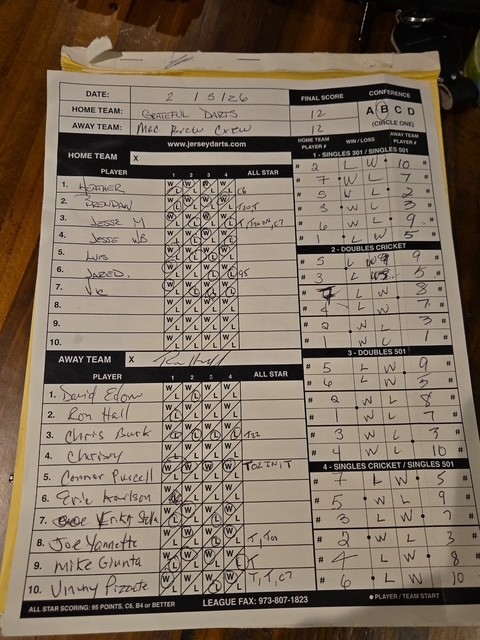 DATE: 2 / 5 / 26 FINAL SCORE CONFERENCE
HOME TEAM: GRATEFUL DARTS 12 A B C D
AWAY TEAM: Mac Brew Crew 12 (CIRCLE ONE)
www.jerseydarts.com HOME TEAM PLAYER # WIN / LOSS AWAY TEAM PLAYER #
HOME TEAM X
1 - SINGLES 301 / SINGLES 501
PLAYER 1 2 3 4 ALL STAR
# 2 W 10 #
# 7 W L 7 #
# 5 W L 2 #
# 3 W L 3 #
# 6 W L 9 #
# 1 W L 5 #
1. HEATHER C6
2. BRENDAN
3. JESSE M
4. JESSE WB
5. LUIS
6. JARED. 95
7. Vic
8.
9.
10.
2 - DOUBLES CRICKET
# 5 L W 9 #
# 3 L W 5 #
# L W 8 #
# 4 L W 7 #
# 2 W L 3 #
# 1 W L 1 #
AWAY TEAM X
PLAYER 1 2 3 4 ALL STAR
1. David Edow
2. Ron Hall
3. Chris Burk T22
4. Charissy
5. Connor Purcell
6. Eric
7.
8. Joe Yannette
9. Mike Giunta T
10. Vinny Pizzute T, T, C7
3 - DOUBLES 501
# 5 L W 9 #
# 6 L W 5 #
# 2 L W 8 #
# 1 L W 7 #
# 3 W L 3 #
# 4 W L 10 #
4 - SINGLES CRICKET / SINGLES 501
# 7 L W 5 #
# 5 W L 9 #
# 3 L W 7 #
# 2 W L 3 #
# L W 8 #
# 6 L W 10 #
ALL STAR SCORING: 95 POINTS, C6, B4 or BETTER LEAGUE FAX: 973-807-1823 ● PLAYER / TEAM START